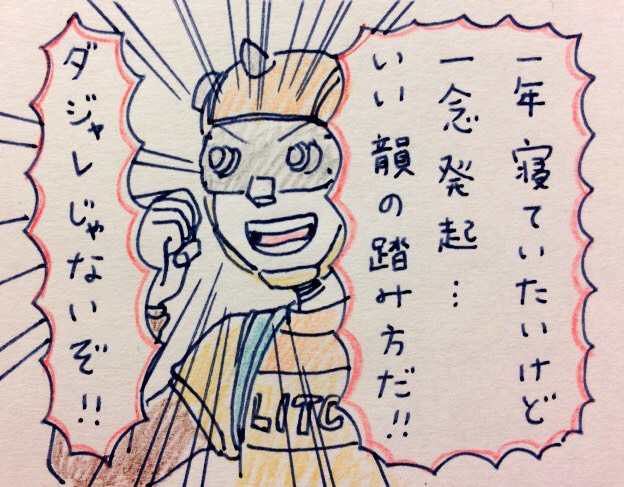 一年寝ていたいけど
一念発起…
いい韻の踏み方だ!!
ダジャレじゃないぞ!!
LITC